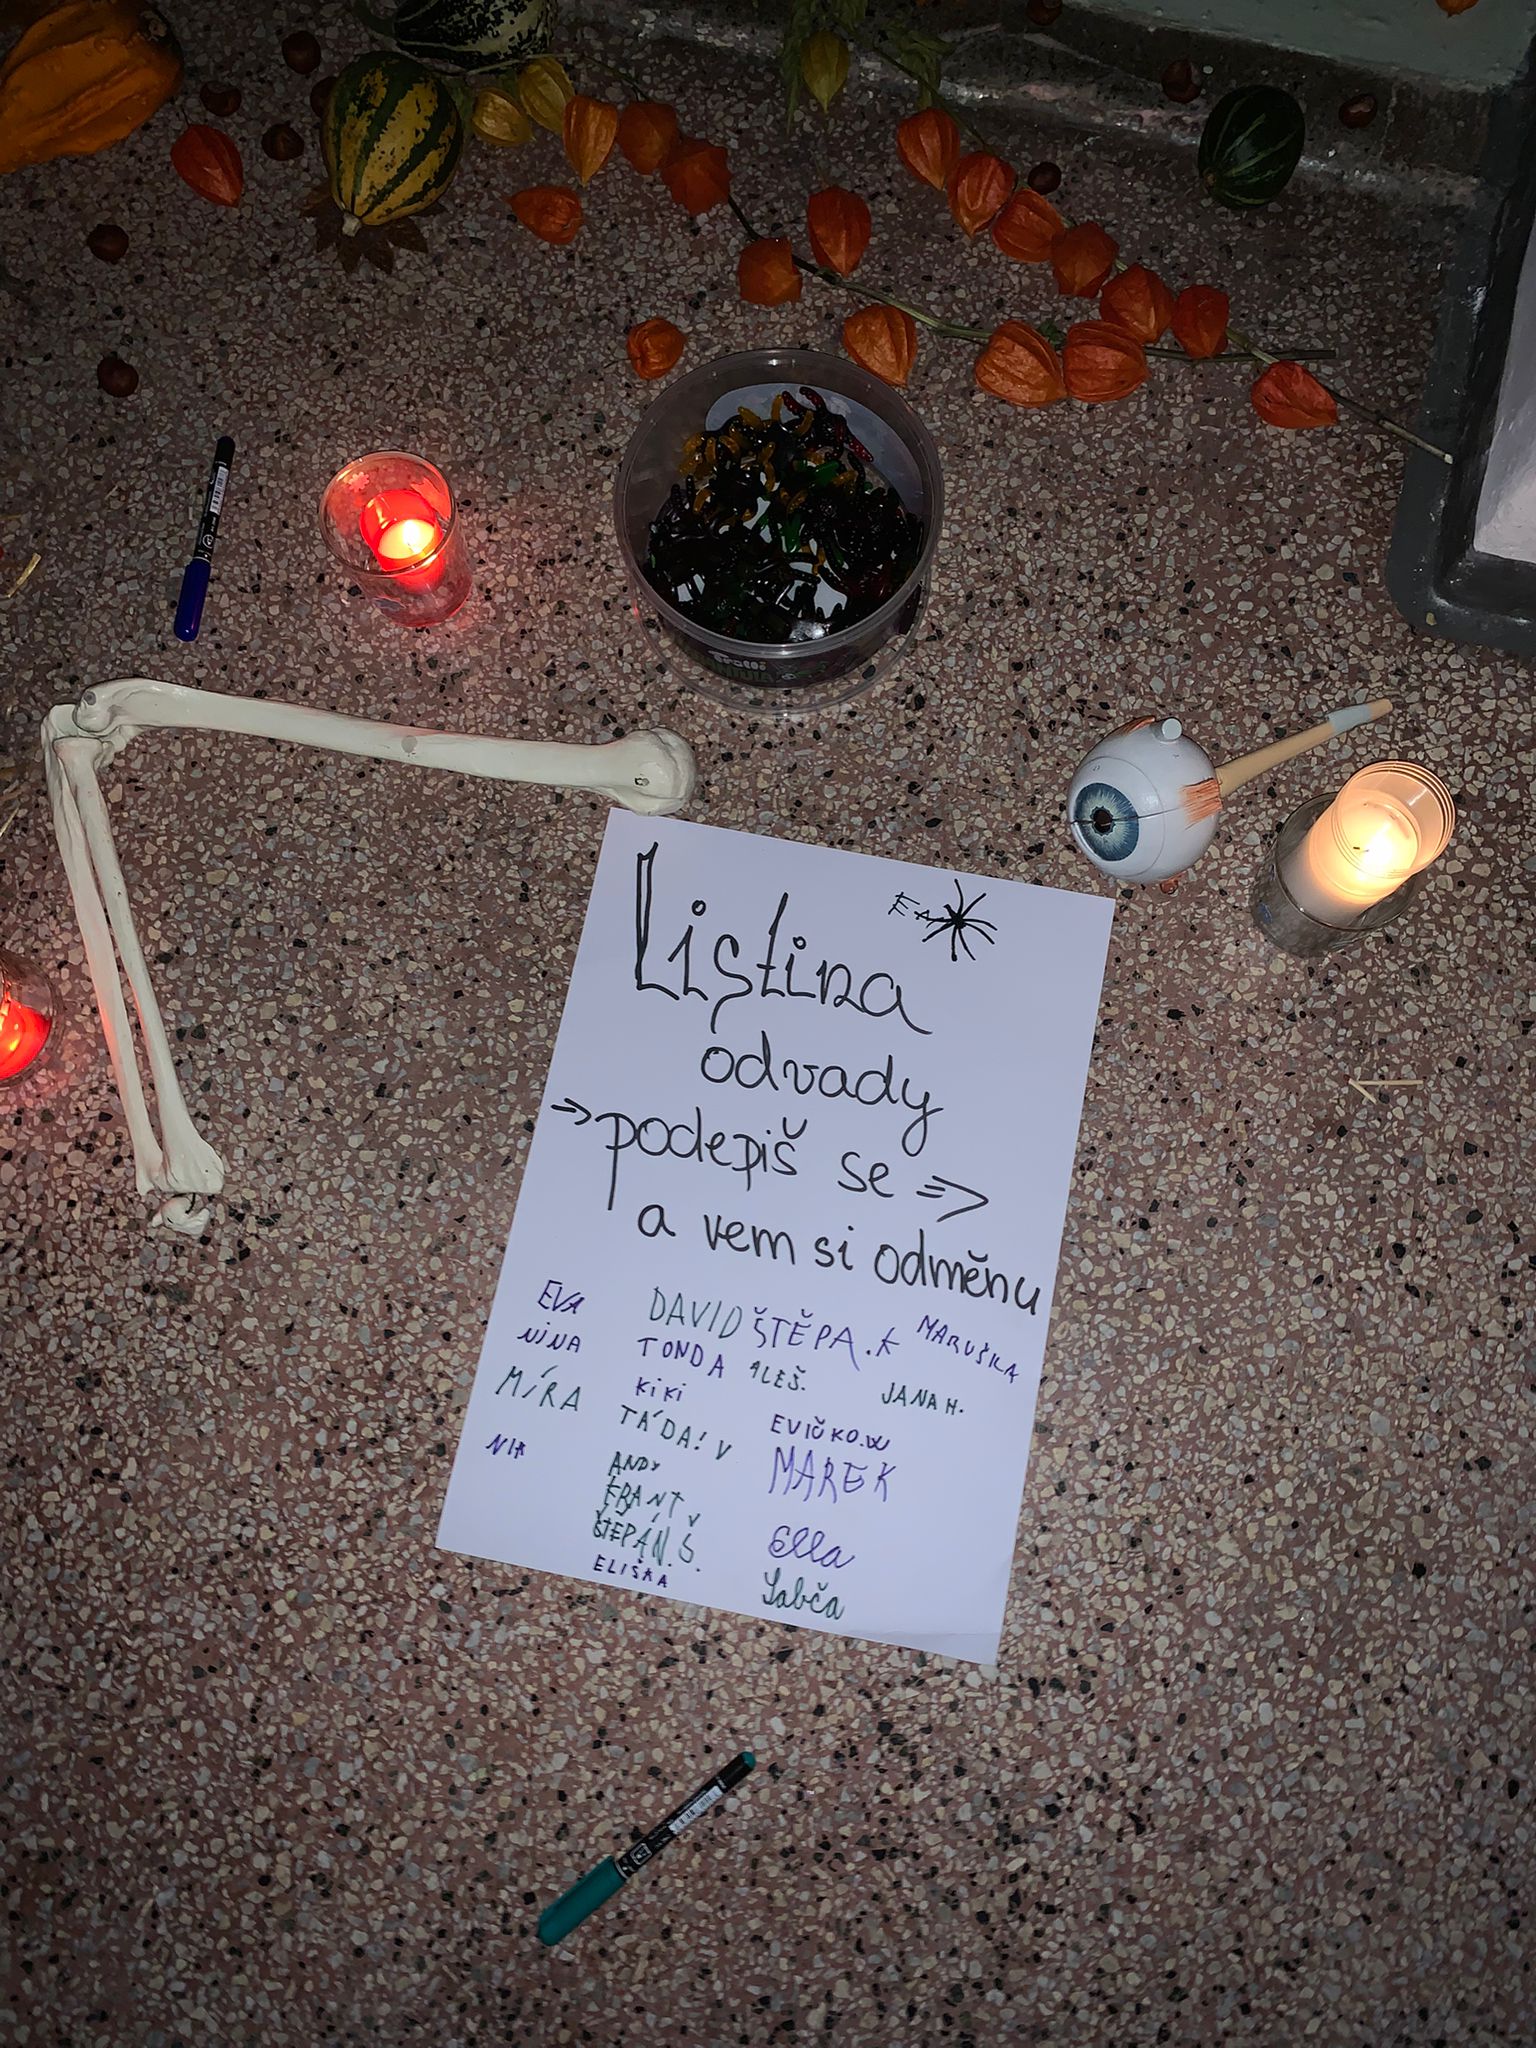 Listina
odvady
⇒ podepiš se ⇒
a vem si odměnu
EVA DAVID ŠTĚPA.K MARUŠKA
NINA TONDA ALEŠ. JANA H.
MÍRA KIKI EVIČKO.W
TÁĎA! V MAREK
NIA ANDY
FRANŤ V
ŠTĚPÁN.S. Ella
ELIŠKA Sabča
Trolli